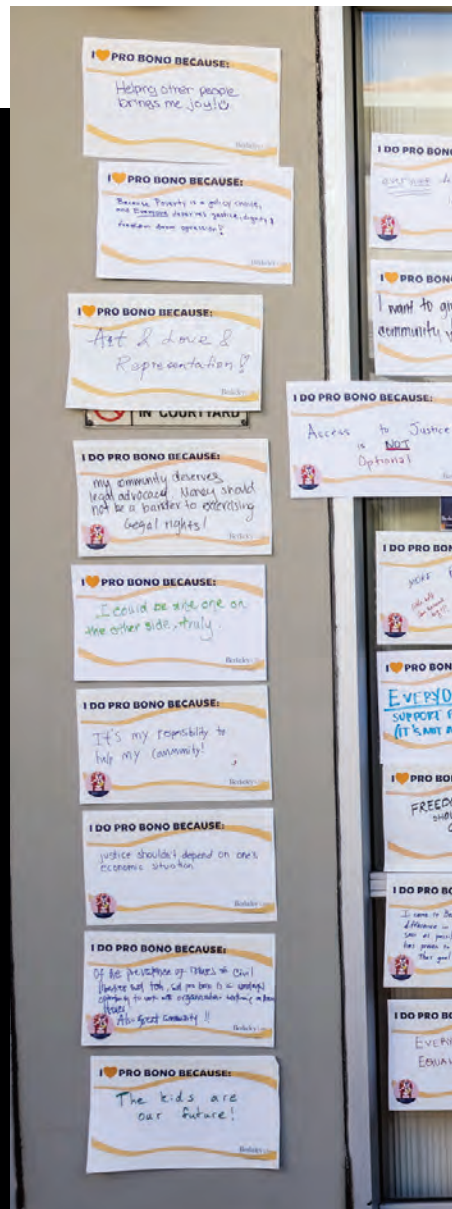 I PRO BONO BECAUSE:
Helping other people
brings me joy!
Berkeley
I PRO BONO BECAUSE:
Because Poverty is a policy choice,
and Everyone deserves justice, dignity &
freedom from oppression!
Berkeley
I PRO BONO BECAUSE:
Art & Love &
Representation!
Berkeley
IN COURTYARD
I DO PRO BONO BECAUSE:
my community deserves
legal advocacy. Money should
not be a barrier to exercising
legal rights!
Berkeley
I PRO BONO BECAUSE:
I could be the one on
the other side, truly.
Berkeley
I DO PRO BONO BECAUSE:
It's my responsibility to
help my community!
Berkeley
I DO PRO BONO BECAUSE:
justice shouldn't depend on one's
economic situation
Berkeley
I DO PRO BONO BECAUSE:
Of the prevalence of issues
and pro bono is a
opportunity to work with organizations
Also Great Community !!
Berkeley
I PRO BONO BECAUSE:
The kids are
our future!
Berkeley
I DO PRO BONO
I PRO BONO
I want to
community
I DO PRO BONO BECAUSE:
Access to Justice
is NOT
Optional
I DO PRO
MORE
I PRO BON
SUPPORT
(IT'S NOT
I PRO BO
I DO PRO BO
I came to
difference in
I DO PRO BO